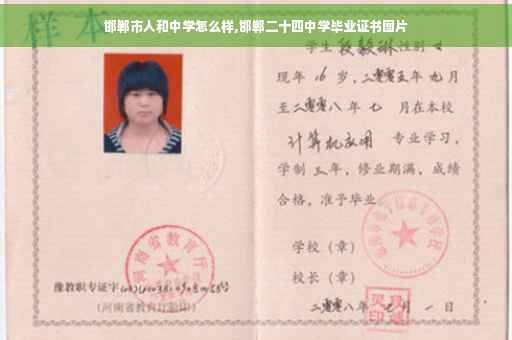 样本
邯郸市人和中学怎么样,邯郸二十四中学毕业证书图片
学生 段毅琳 性别 女
现年 16 岁,二零零五年 九 月
至二零零八年 七 月在本校
计算机应用 专业学习,
学制 三 年,修业期满,成绩
合格,准予毕业
学校(章)
校长(章)
二零零八年 月 一 日
河南省教育厅
豫教职专证字
(河南省教育厅验印)